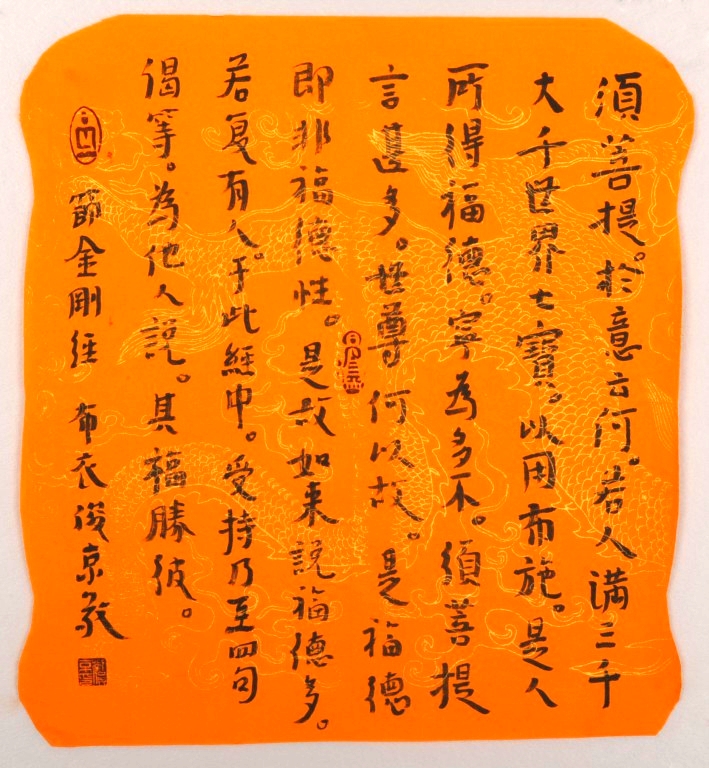 須菩提。於意云何。若人滿三千
大千世界七寶。以用布施。是人
所得福德。寧為多不。須菩提
言甚多。世尊何以故。是福德
即非福德性。是故如来說福德多。
若复有人。于此經中。受持乃至四句
偈等。為他人說。其福勝彼。
節金剛经 布衣俊京敬